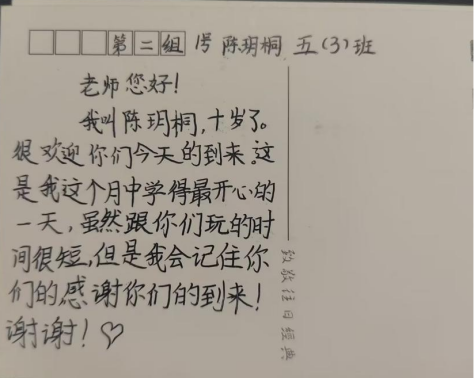 第二组 1号 陈玥桐 五(3)班
老师您好!
我叫陈玥桐,十岁了。
很欢迎你们今天的到来。这
是我这个月中学得最开心的
一天,虽然跟你们玩的时
间很短,但是我会记住你
们的感谢你们的到来!
谢谢!♡
致敬往日经典